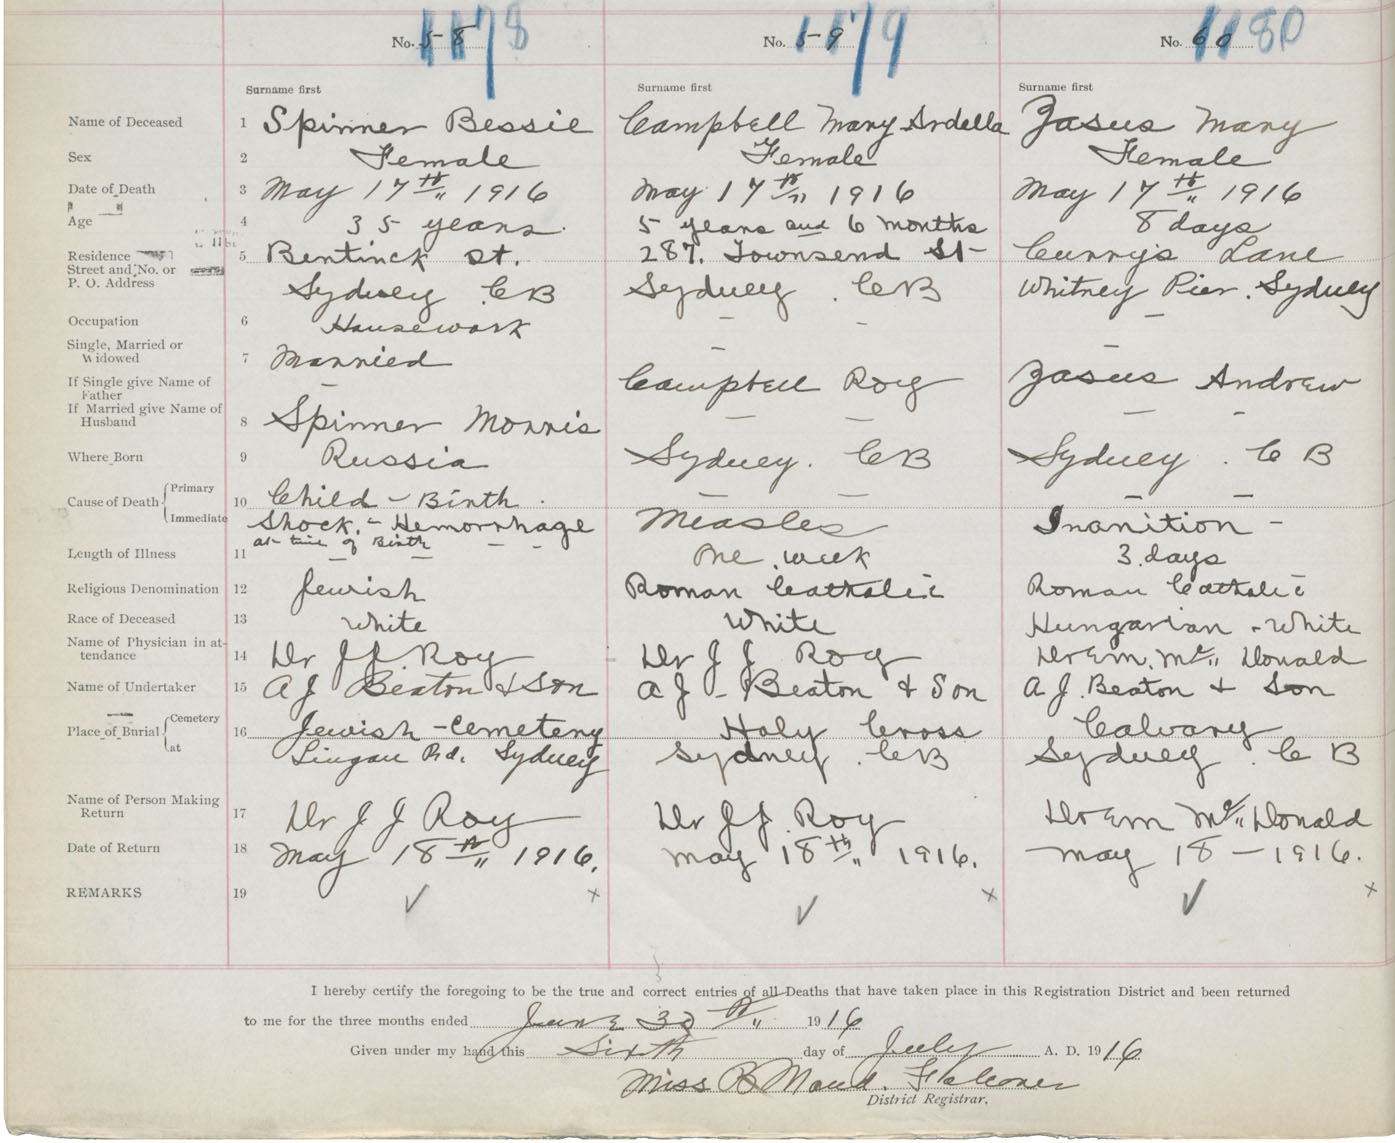 No. 58 1178 No. 59 1179 No. 60 1180
Surname first Surname first Surname first
Name of Deceased 1 Spinner Bessie Campbell Mary Ardella Zasus Mary
Sex 2 Female Female Female
Date of Death 3 May 17th 1916 May 17th 1916 May 17th 1916
Age 4 35 years. 5 years and 6 months 8 days
Residence 5 Bentinck St. 287. Townsend St Curry's Lane
Street and No. or
P. O. Address Sydney CB Sydney. CB Whitney Pier. Sydney
Occupation 6 Housework – – –
Single, Married or
Widowed 7 Married –
If Single give Name of
Father – Campbell Roy Zasus Andrew
If Married give Name of
Husband 8 Spinner Morris – – – –
Where Born 9 Russia Sydney. CB Sydney. C B
Cause of Death Primary 10 Child – Birth – – – –
Immediate Shock. – Hemorrhage Measles Inanition –
at time of Birth – –
Length of Illness 11 – – One week 3 days
Religious Denomination 12 Jewish Roman Catholic Roman Catholic
Race of Deceased 13 White White Hungarian - White
Name of Physician in at-
tendance 14 Dr J J. Roy Dr J J Roy Dr E M. Mc Donald
Name of Undertaker 15 A J Beaton & Son A J – Beaton & Son A J. Beaton & Son
Place of Burial Cemetery 16 Jewish – Cemetery Holy Cross Calvary
at Lingan Rd. Sydney Sydney. CB Sydney. C B
Name of Person Making
Return 17 Dr J J Roy Dr J J. Roy Dr E M Mc Donald
Date of Return 18 May 18th 1916. May 18th 1916. May 18 – 1916.
REMARKS 19 ✓ x ✓ x ✓ x
I hereby certify the foregoing to be the true and correct entries of all Deaths that have taken place in this Registration District and been returned
to me for the three months ended June 30th 1916
Given under my hand this Sixth day of July A. D. 1916
Miss B Maud. Falconer
District Registrar.